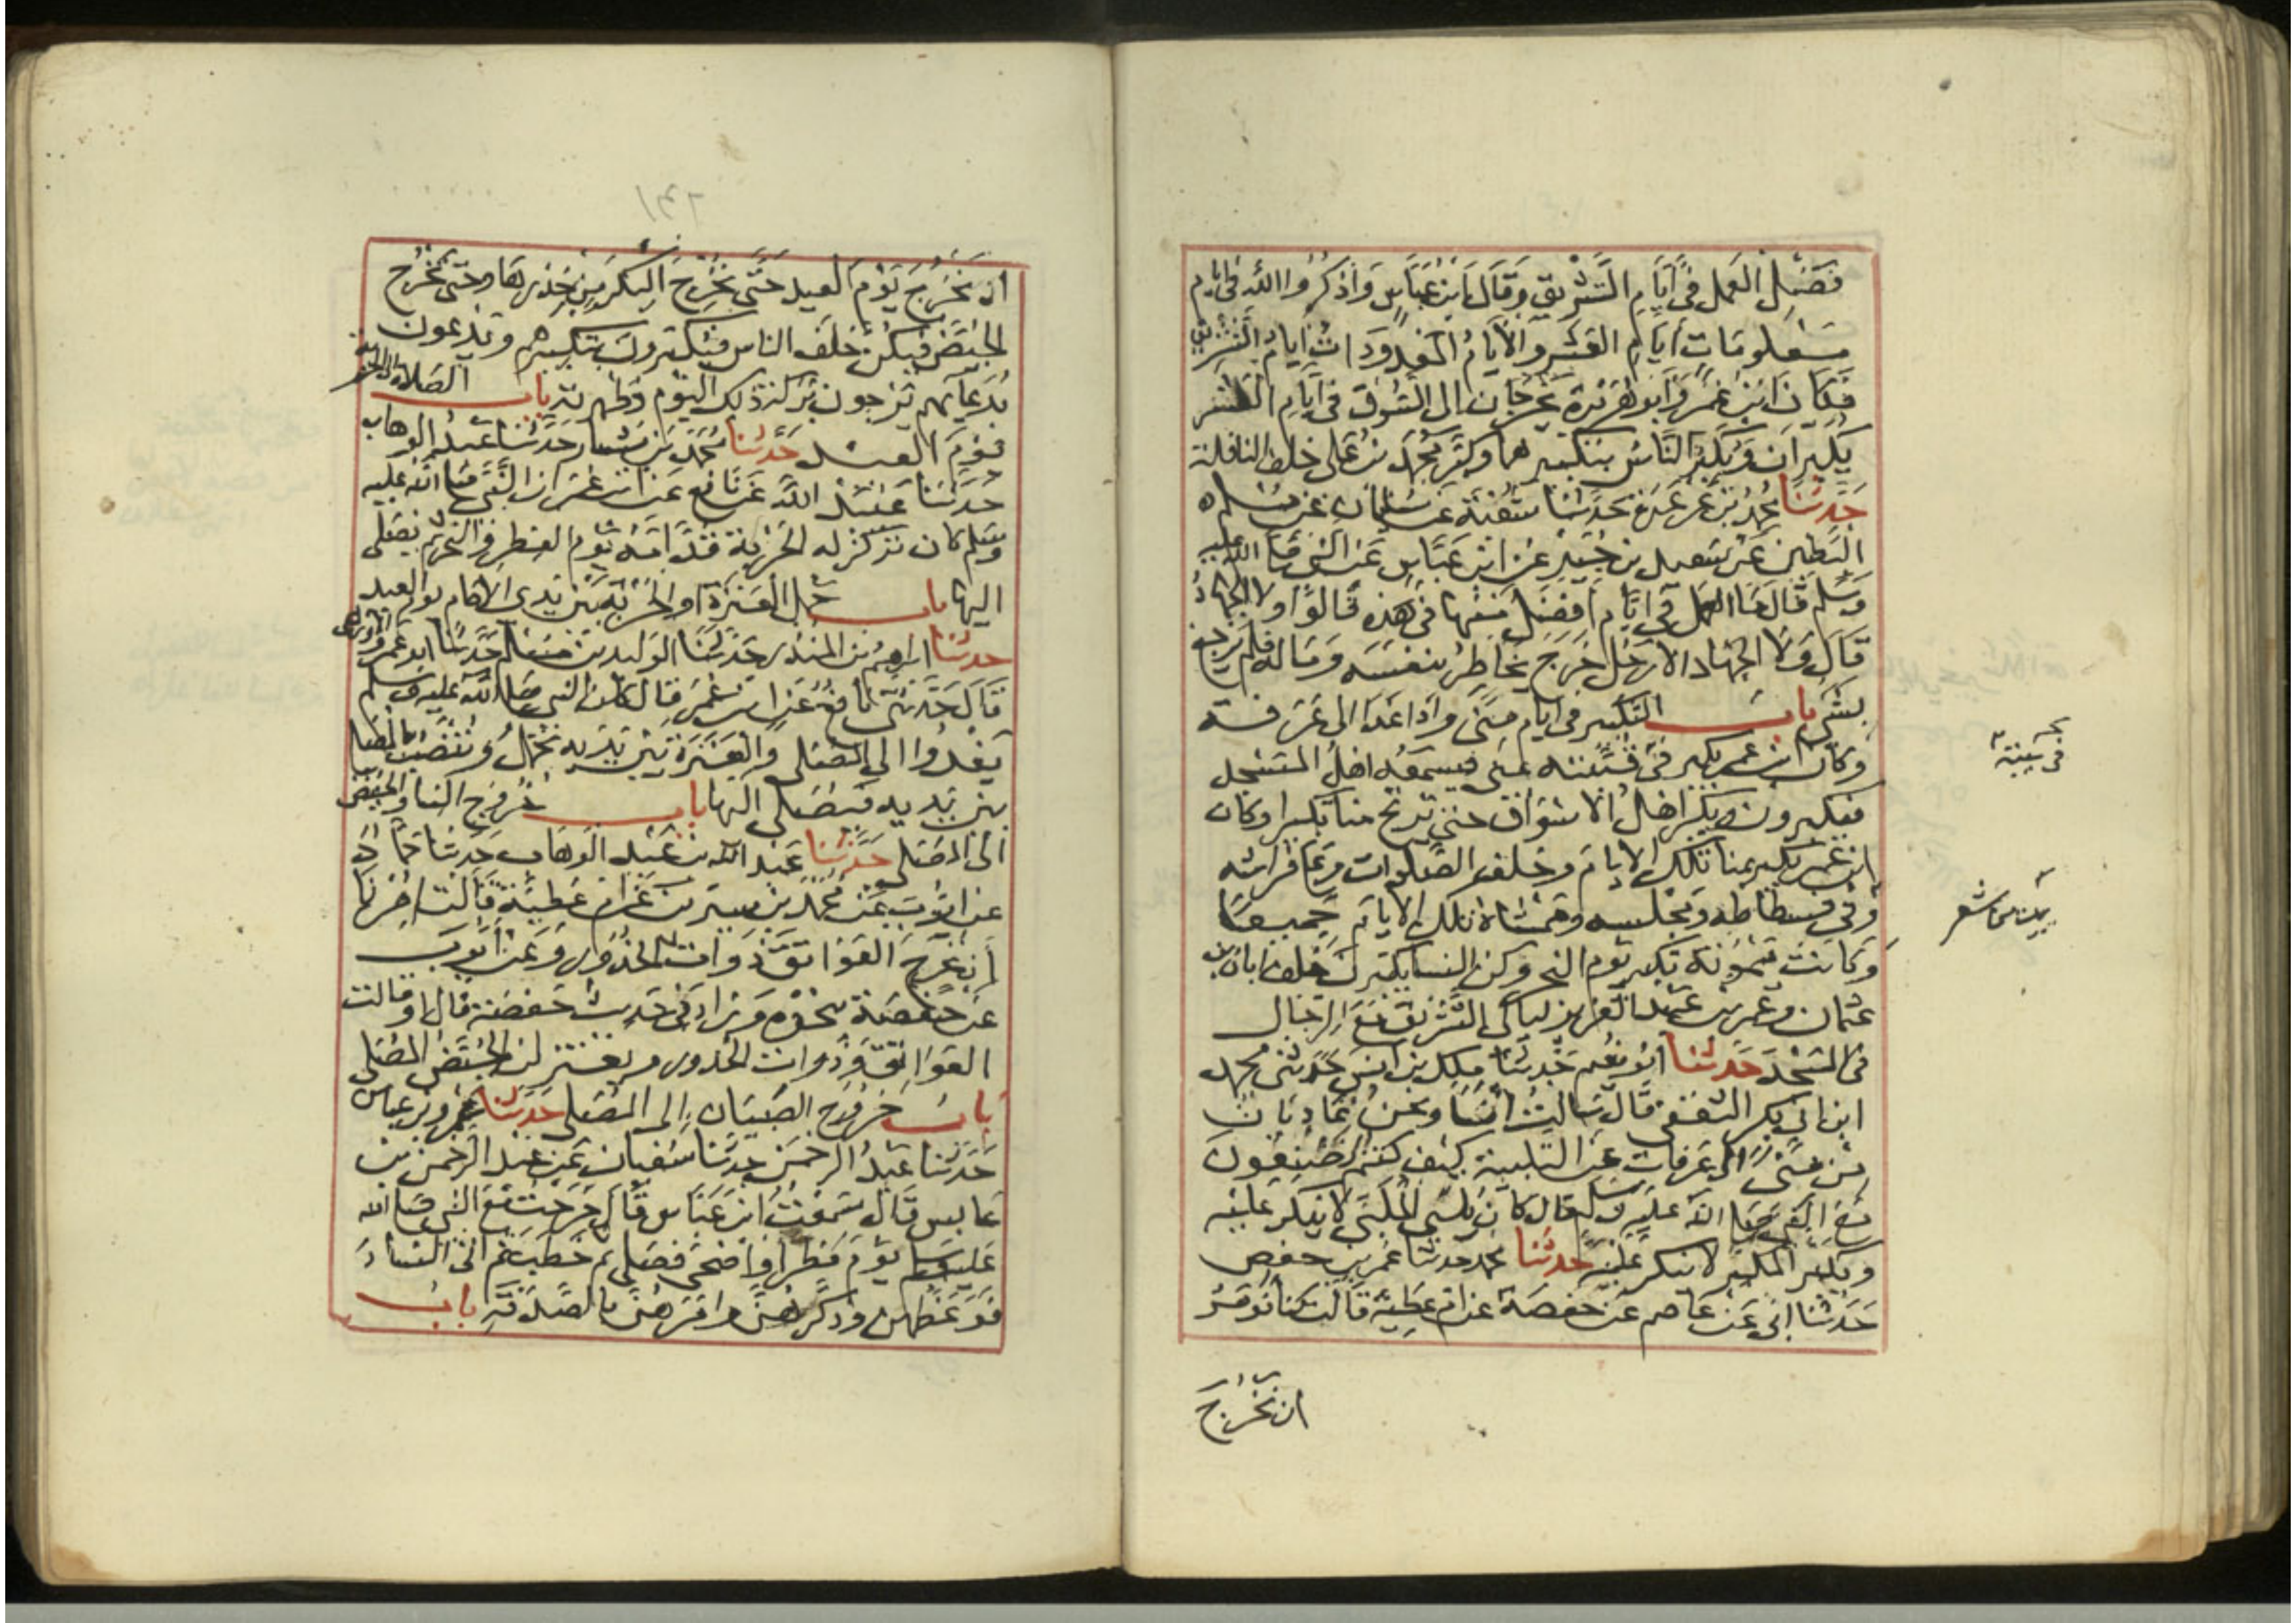 فَضْلِ العَمل فِي أيَّامِ التَّشْرِيقِ وَقَالَ ابْنُ عَبَّاسٍ وَاذْكُرُوا الله فِي ايام
مَعْلومَات أيَّامِ العَشْرِ وَالأيَّامُ المَعْدُودَاتُ أيامُ التَّشْرِيقِ
وَكَانَ ابْنُ عُمَرَ وَأبو هُرَيْرَةَ يَخْرُجَان الى السُّوق فِي ايَّامِ العَشر
يُكَبِّرَان وَيُكَبِّرُ النَّاسُ بتكبيرهما وكَبَّرَ مُحمَّد بن عَلى خلفَ النافلة
حَدَّثَنَا محمد بن عَرْعَرَة حَدَّثنَا شُعْبَة عَن سُليمان عَن مُسْلم
البَطِين عَن سَعيد بن جُبَيْرٍ عَن ابن عَبَّاسٍ عَن النَّبي صَلى الله عليه
وَسَلم قَالَ مَا العَمل في ايَّام أفضَل مِنْهَا فِي هَذِه قَالوُا وَلا الجهَادُ
قَالَ وَلَا الجهَاد الا رَجُل خَرَجَ يخَاطِرُ بنفسَه وَمَاله فلم يَرجع
بشَي باب التكبير في ايام مِنًى وَاذا غَدَا الى عَرَفة
وكانَ ابن عُمر يكبر فى قُبَّتِه بمنى فيَسمَعُه اهلُ المَسْجد
فيكبرون ويكبر اهلُ الاسْوَاق حتى ترتج منا تكبيرا وكان
ابن عُمر يكبر بمنا تلكَ الايام وخلفَ الصَّلوات وعَلى فراشه
وفي فسطاطه وَمجْلسه وَمَمْشَاهُ تلك الايام جَميعًا
وَكَانت مَيْمُونَة تكبر يَوم النحر وكن النسا يكبرن خلفَ ابان بن
عثمان وعُمر بن عَبْد العَزيز ليَالى التَّشريق مَعَ الرّجَال
في المَسْجِد حَدَّثنَا أبو نعيم حَدَّثنَا ملك بن انس حَدثني محمد
ابن ابى بكر الثقفي قَالَ سَالتُ أنسًا وَنحنُ غَادِيَان
مِن مِنًى الى عَرفات عَن التلبية كيف كنتم تَصْنعُونَ
مَعَ النَّبي صَلى الله عَليه وسلم قال كانَ يُلبّي المُلبّي لا ينكر عَليْه
ويكبر المكبر لا ينكر عَليْه حَدثنا محمد حدثنا عُمر بن حفص
حَدثنا ابى عَن عَاصم عَن حَفصَة عن ام عَطِيَّة قَالت كنا نُومَرُ
ان نخْرُجَ
في بيته
أن نخْرُجَ يَوْمَ العيد حَتَّى نُخْرِجَ البِكْرَ مِن خِدْرِهَا وحَتى نُخْرجَ
الحُيَّضَ فيكنَّ خلفَ الناس فيُكبّرونَ بتكبيرهم ويدعون
بدُعَائهم يَرجون بَركة ذلك اليَوم وَطُهرته باب الصَلاة الى الحربة
يَوم العيد حَدَّثنَا مُحمد بن بشار حَدَّثنا عَبدُ الوهاب
حَدَّثنَا عُبَيْدُ اللّه عَن نَافع عَن ابن عُمَر ان النَّبي صَلى الله عَليه
وسَلم كان تركز له الحَرْبة قدَّامَهُ يَوم الفِطر وَالنحر ثم يصَلى
اليها باب حَمل العَنَزَة أو الحَرْبَة بَين يَدي الامَام يَوم العيد
حَدَّثنَا ابراهيم بن المنذر حَدَّثنَا الوَليد بن مسْلم حَدثنا ابو عَمرو الاوزاعي
قَالَ حَدَّثنى نافعٌ عَن ابن عُمَر قال كان النبي صَلى الله عَليه وسَلم
يَغْدُوا الى المصَلى وَالعَنَزَة بَيْن يَدَيه تُحْمَلُ وَتُنْصَبُ بالمصَلى
بَين يَدَيه فيُصَلى اليها باب خُرُوج النسا وَالحيَّض
الى المصَلى حَدَّثنا عَبد الله بن عَبْد الوَهاب حَدثنا حَمَّاد
عن ايُّوبَ عَن مُحمَّد بن سيرين عَن ام عَطيَّة قَالَت امرنا
أن نخرج العَوَاتقَ ذَوات الخُدُور وَعَن ايُّوب
عَن حَفصَة بنَحْوه وَزاد فِي حَديث حَفصَة قال او قالت
العَوَاتِق وَذَوات الخدور ويعتزلن الحُيَّضُ المصَلى
بابُ خُروج الصِّبيَان الى المصَلى حَدَّثنا عَمرو بن عباس
حَدَّثنا عَبْدُ الرحمن حَدثنا سُفيان عَن عَبْد الرحمن بن
عَابس قَالَ سَمعْتُ ابن عَبَّاس قَالَ خَرجتُ مَعَ النبي صَلى الله
عَليه وسلم يَوْمَ فطر أو أضحى فصَلى ثم خَطبَ ثم اتَى النسَاءَ
فوَعَظهن وذكّرَهنَّ وامَرَهُنَّ بالصَّدَقَةِ بابُ